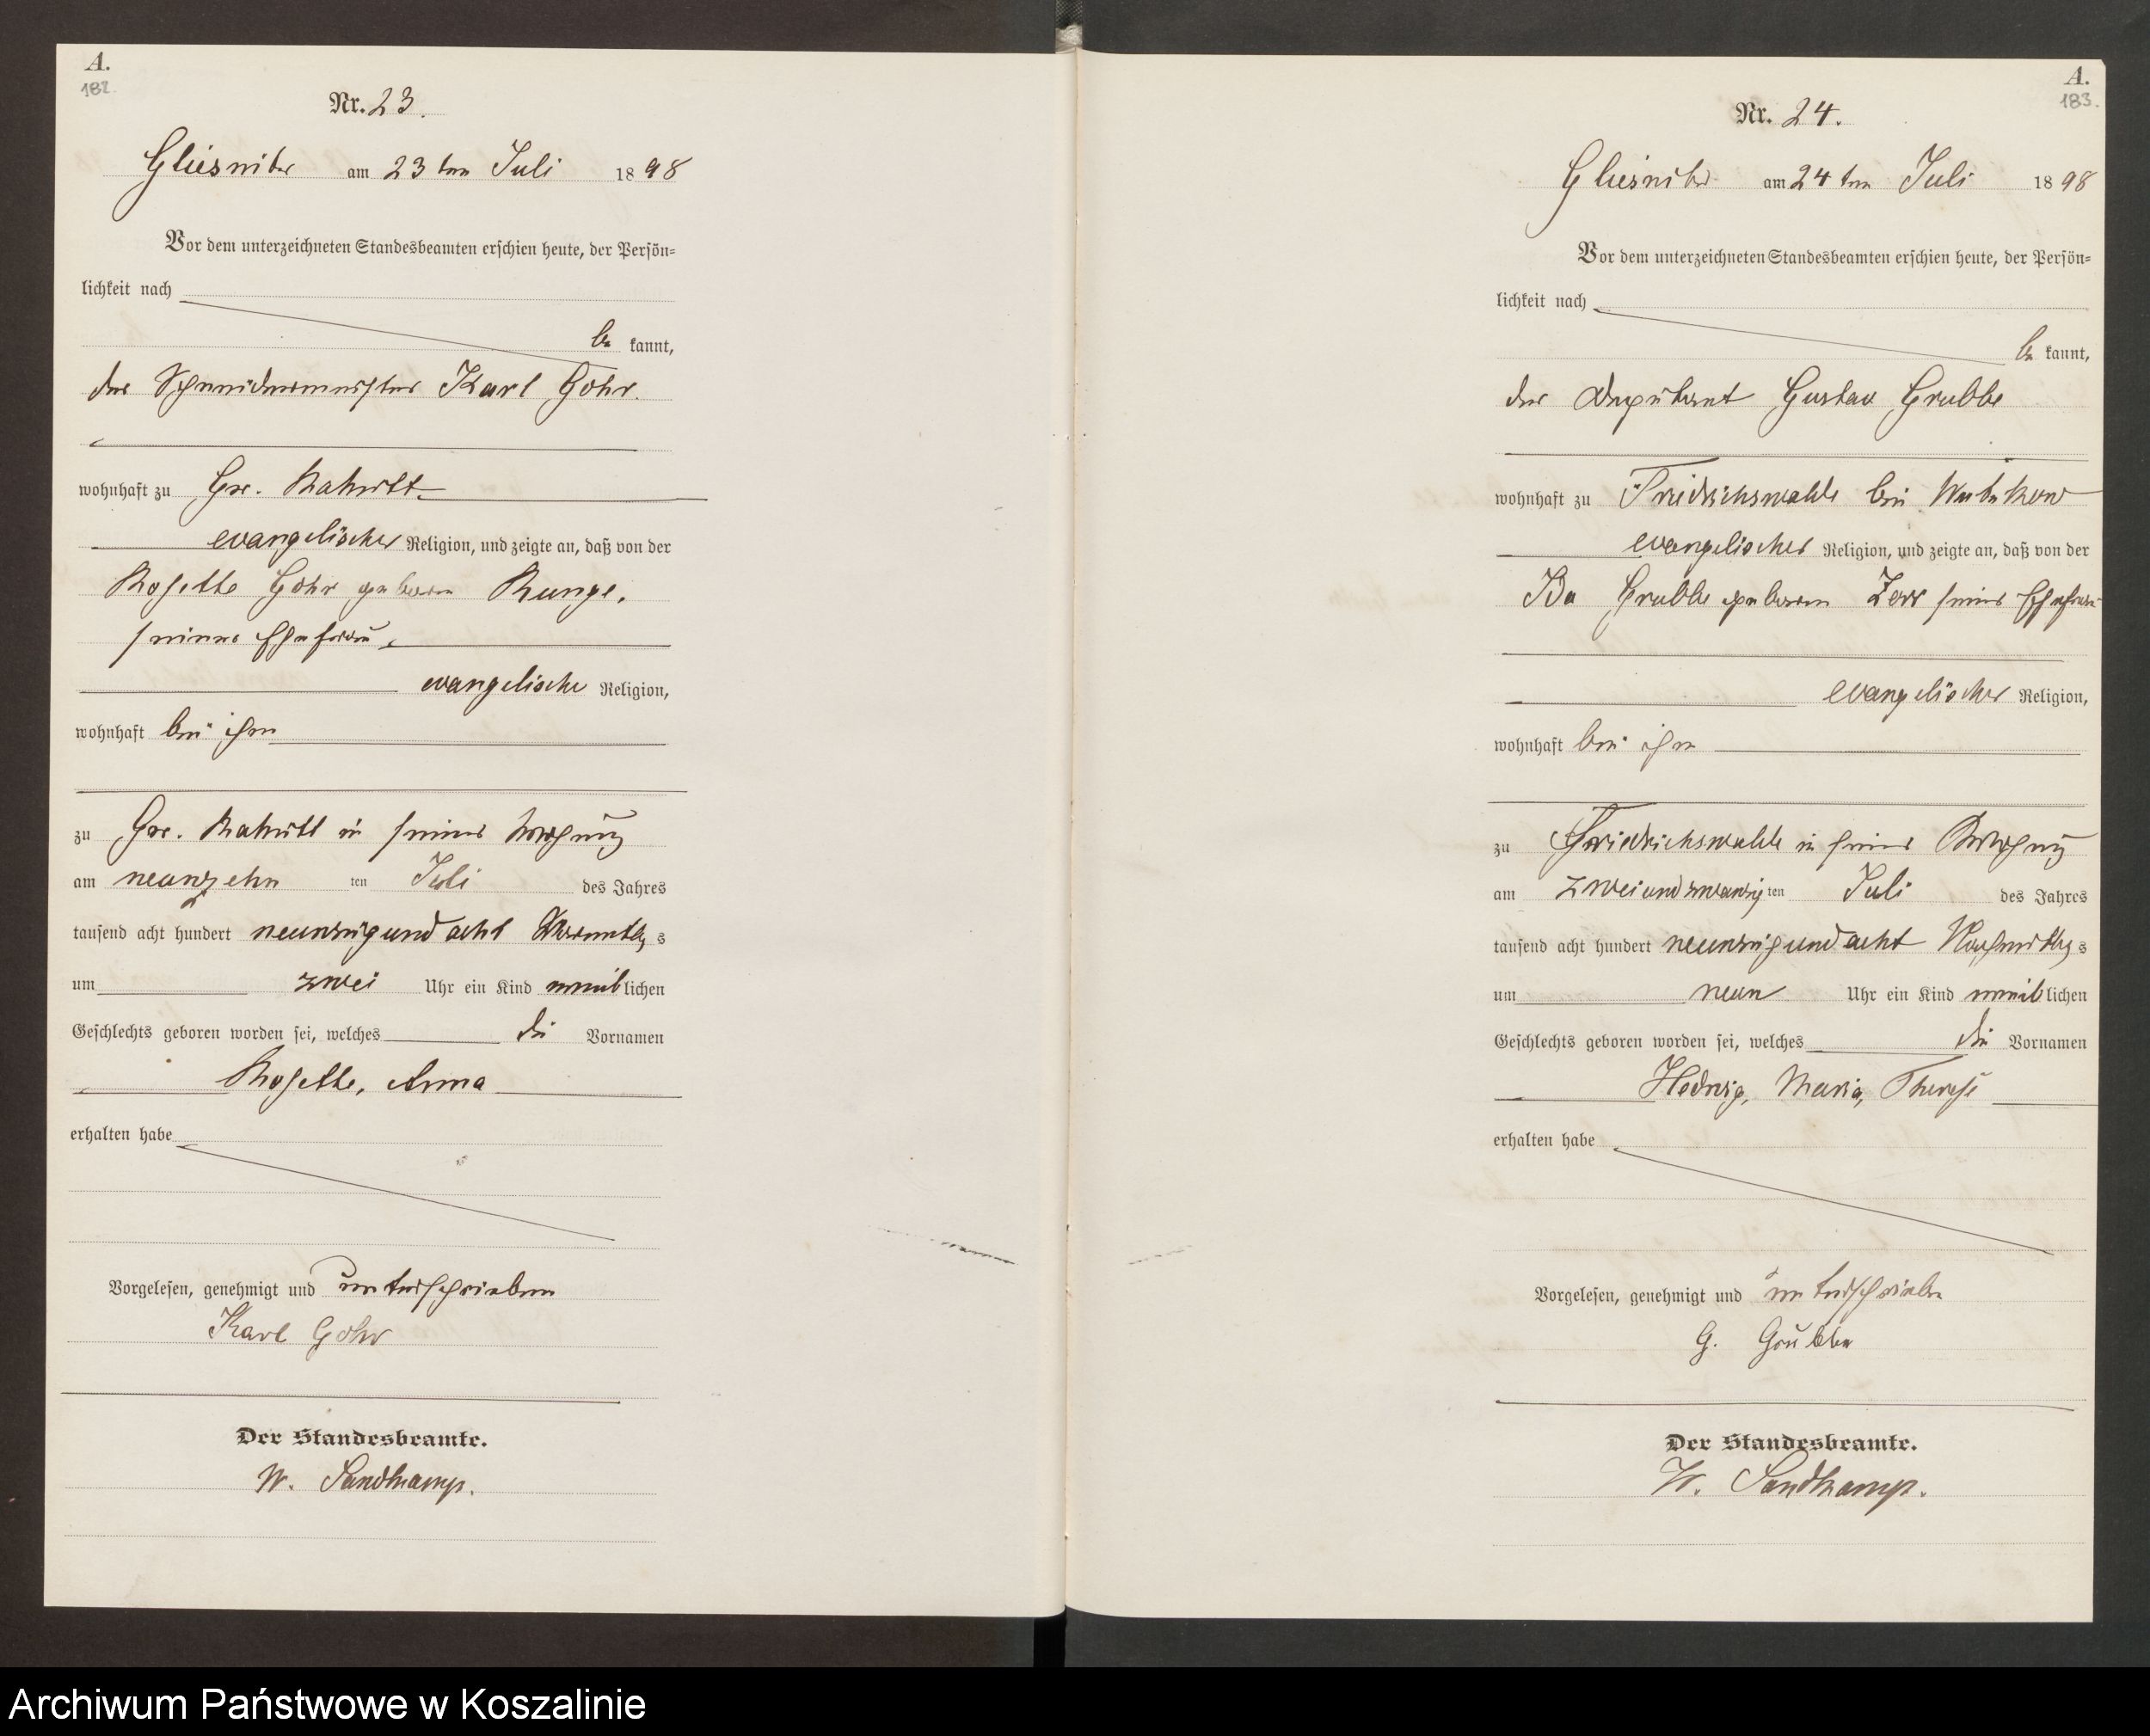 A.
182.
Nr. 23.
Gliesnitz am 23ten Juli 1898
Vor dem unterzeichneten Standesbeamten erschien heute, der Persön=
lichkeit nach
be kannt,
der Schneidermeister Karl Gohr.
wohnhaft zu Gr. Rakitt
evangelischer Religion, und zeigte an, daß von der
Rosette Gohr geboren Runge,
seiner Ehefrau,
evangelische Religion,
wohnhaft bei ihm
zu Gr. Rakitt in seiner Wohnung
am neunzehn ten Juli des Jahres
tausend acht hundert neunzig und acht Vormittag s
um zwei Uhr ein Kind weiblichen
Geschlechts geboren worden sei, welches die Vornamen
Rosette, Anna
erhalten habe
Vorgelesen, genehmigt und unterschrieben
Karl Gohr
Der Standesbeamte.
W. Sandkamp.
A.
183.
Nr. 24.
Gliesnitz am 24ten Juli 1898
Vor dem unterzeichneten Standesbeamten erschien heute, der Persön=
lichkeit nach
be kannt,
der Deputant Gustav Grubbe
wohnhaft zu Friedrichswalde bei
evangelischer Religion, und zeigte an, daß von der
Grubbe geboren seiner Ehefrau
evangelischer Religion,
wohnhaft bei ihm
zu Friedrichswalde in seiner Wohnung
am zweiundzwanzig ten Juli des Jahres
tausend acht hundert neunzig und acht Nachmittag s
um neun Uhr ein Kind weiblichen
Geschlechts geboren worden sei, welches die Vornamen
Hedwig, Maria, Therese
erhalten habe
Vorgelesen, genehmigt und unterschrieben
G. Grubbe
Der Standesbeamte.
W. Sandkamp.
Archiwum Państwowe w Koszalinie